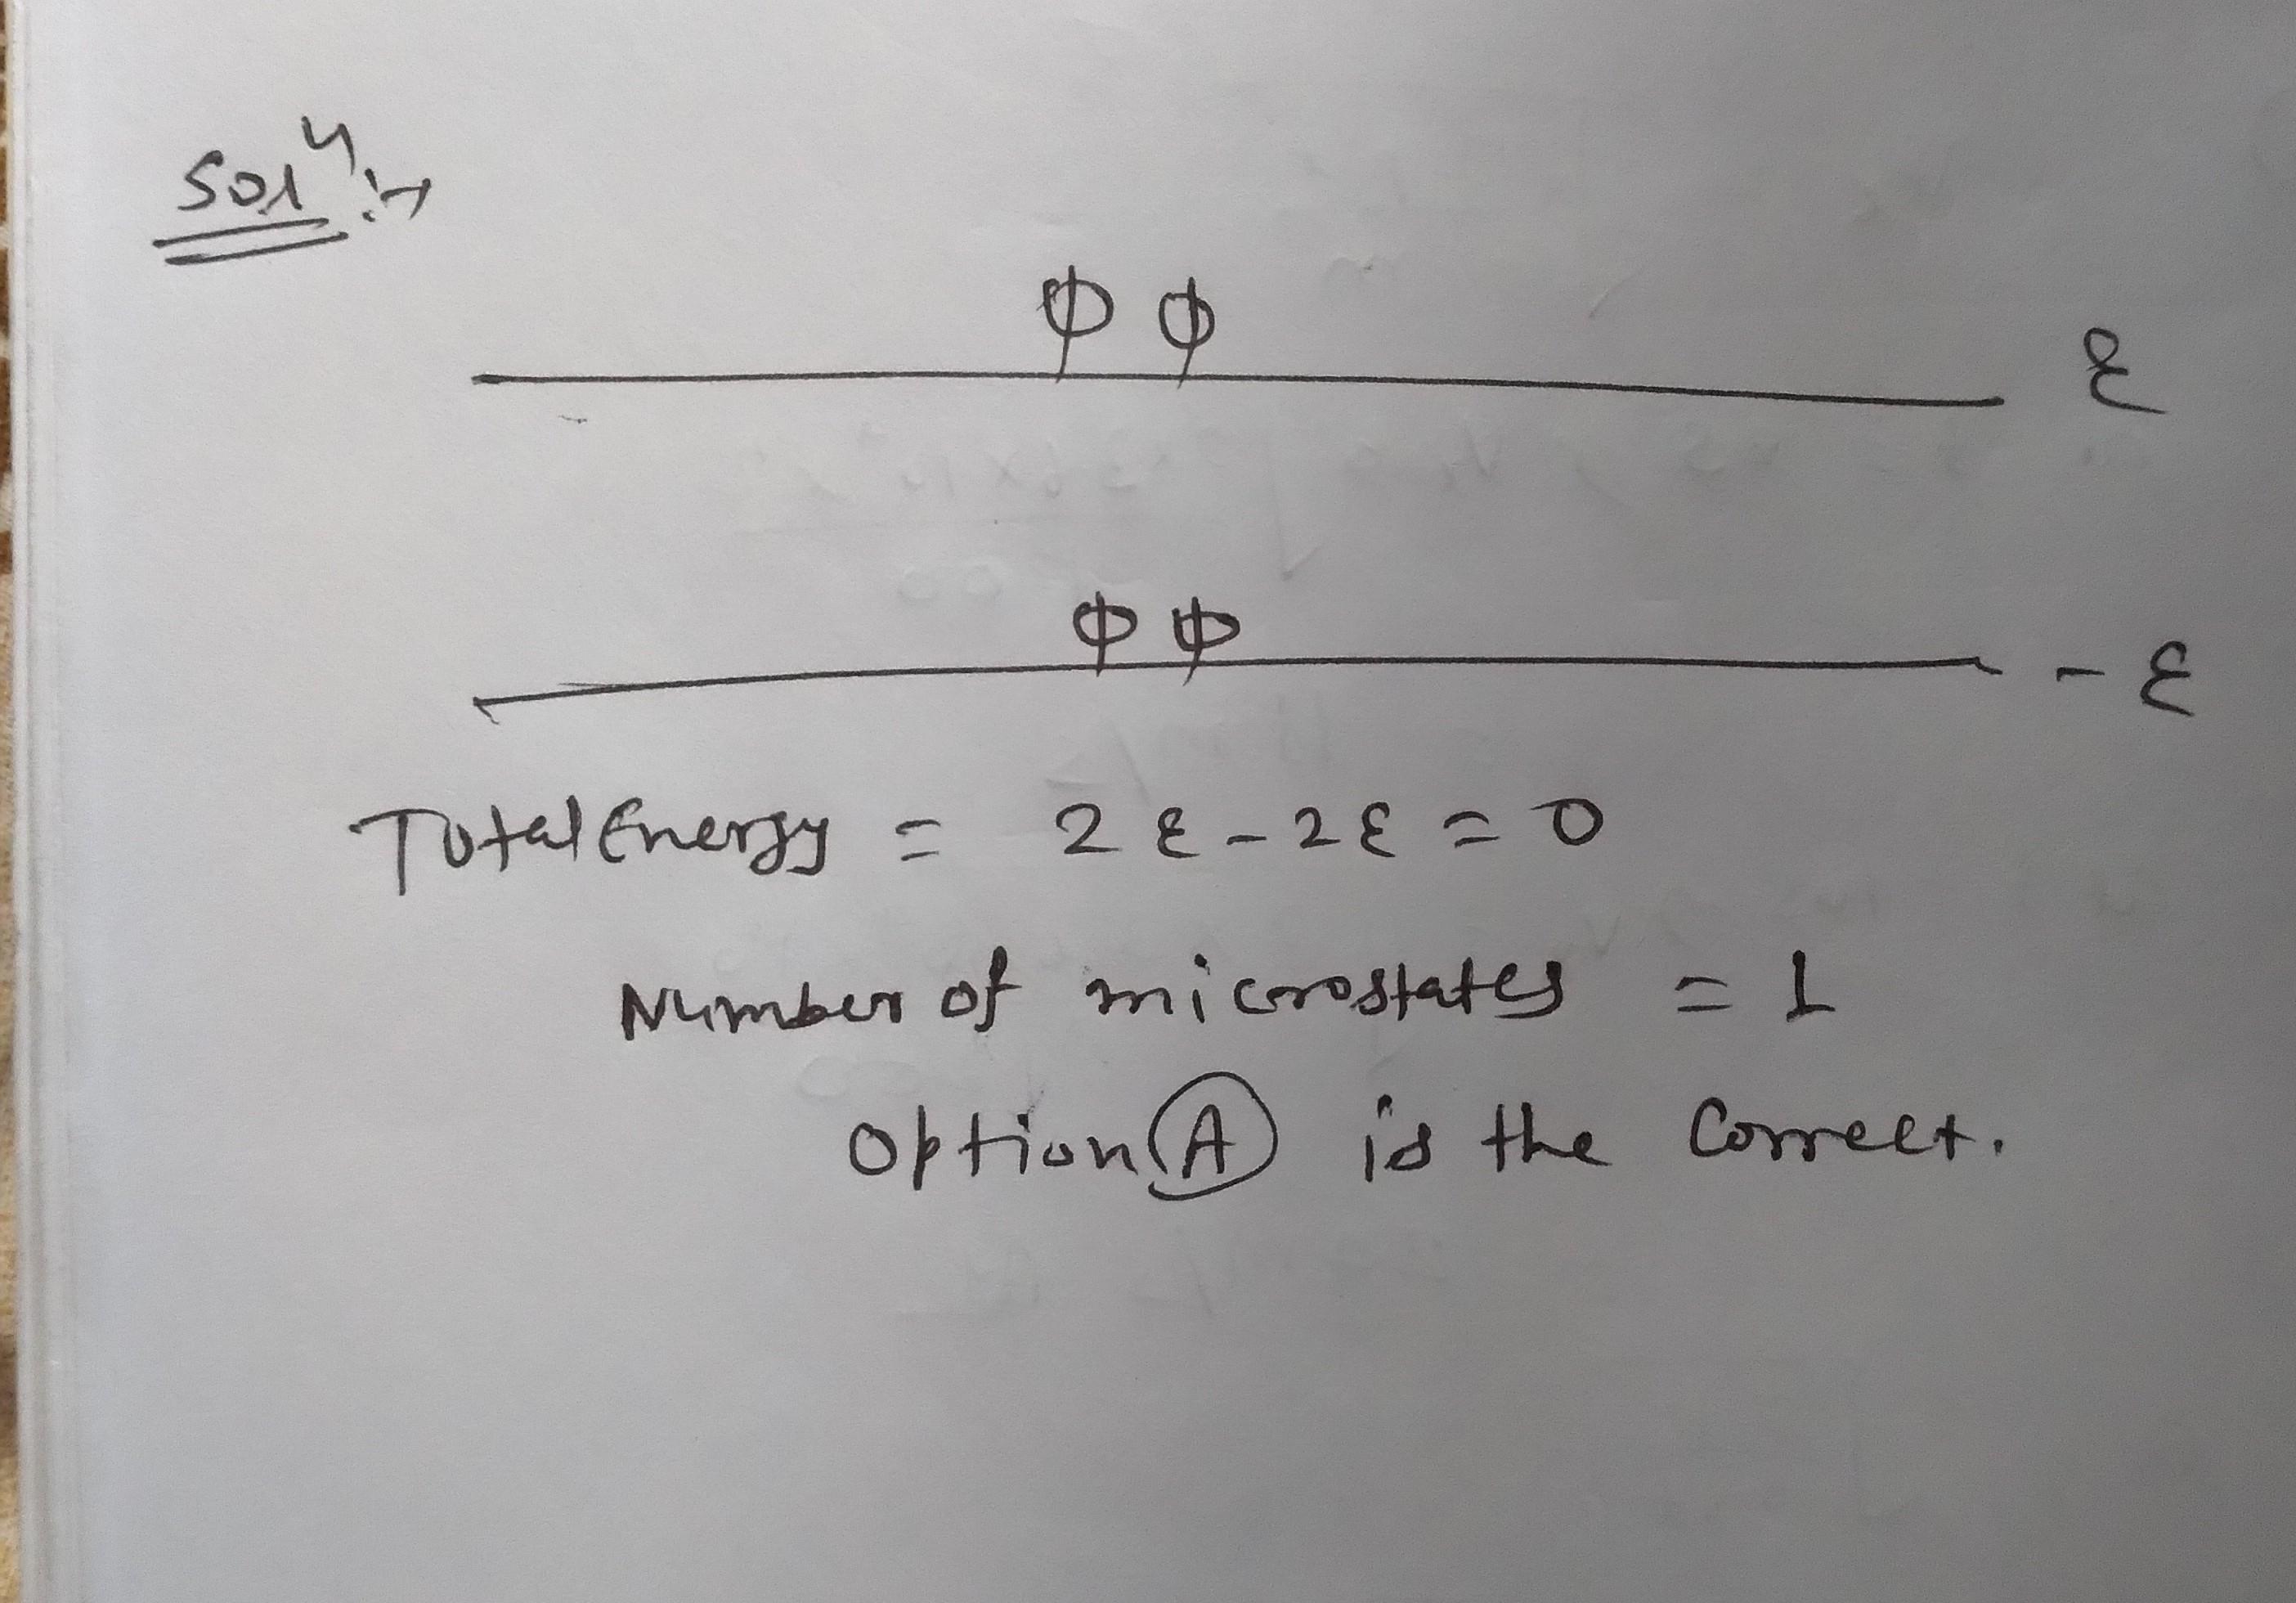 Solⁿ:→
ϕ ϕ
ε
ϕ ϕ
- ε
Total Energy = 2ε - 2ε = 0
Number of microstates = 1
Option (A) is the Correct.